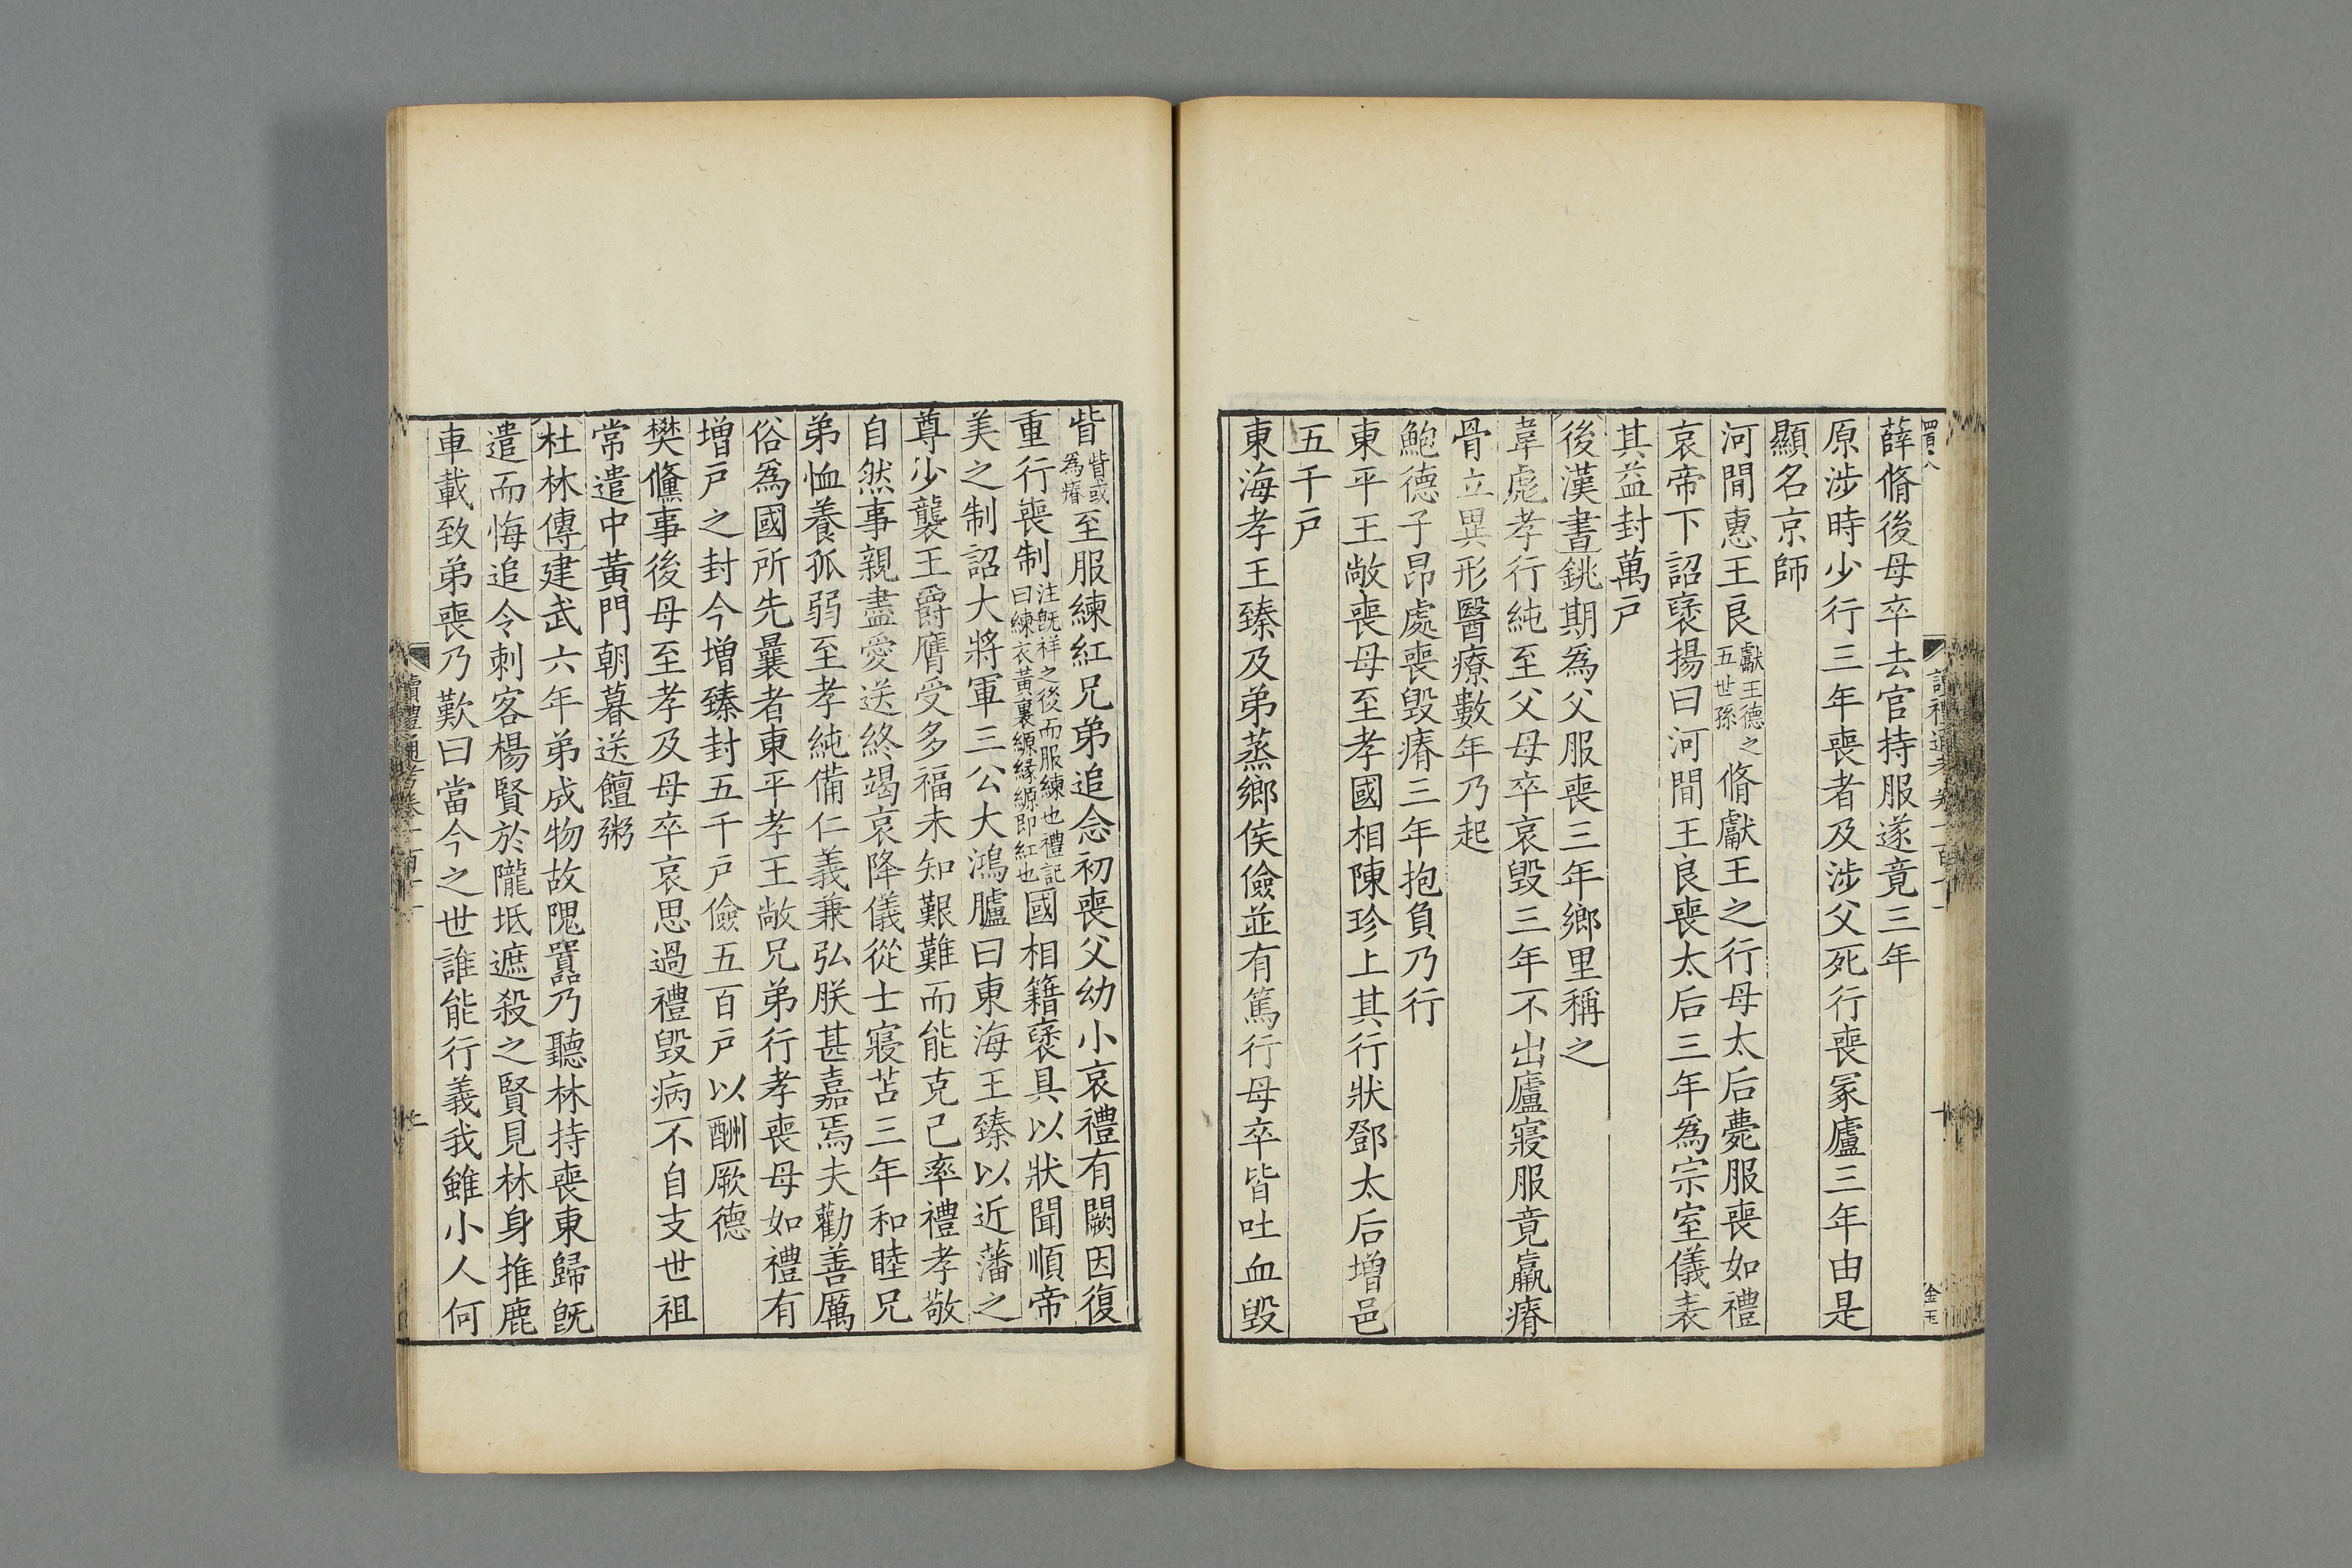 薛脩後母卒去官持服遂竟三年
原涉時少行三年喪者及涉父死行喪冢廬三年由是
顯名京師
河間惠王良獻王德之五世孫脩獻王之行母太后薨服喪如禮
哀帝下詔襃揚曰河間王良喪太后三年為宗室儀表
其益封萬戸
後漢書銚期為父服喪三年鄉里稱之
韋彪孝行純至父母卒哀毀三年不出廬寢服竟羸瘠
骨立異形醫療數年乃起
鮑德子昂處喪毀瘠三年抱負乃行
東平王敞喪母至孝國相陳珍上其行狀鄧太后增邑
五千戸
東海孝王臻及弟蒸鄉侯儉並有篤行母卒皆吐血毀
眥眥或為瘠至服練紅兄弟追念初喪父幼小哀禮有闕因復
重行喪制注旣祥之後而服練也禮記曰練衣黃裏縓緣縓即紅也國相籍襃具以狀聞順帝
美之制詔大將軍三公大鴻臚曰東海王臻以近藩之
尊少襲王爵膺受多福未知艱難而能克己率禮孝敬
自然事親盡愛送終竭哀降儀從士寢苫三年和睦兄
弟恤養孤弱至孝純備仁義兼弘朕甚嘉焉夫勸善厲
俗為國所先曩者東平孝王敞兄弟行孝喪母如禮有
增戸之封今增臻封五千戸儉五百戸以酬厥德
樊儵事後母至孝及母卒哀思過禮毀病不自支世祖
常遣中黃門朝暮送饘粥
杜林傳建武六年弟成物故隗囂乃聽林持喪東歸旣
遣而悔追令刺客楊賢於隴坻遮殺之賢見林身推鹿
車載致弟喪乃歎曰當今之世誰能行義我雖小人何
讀禮通考卷一百十一